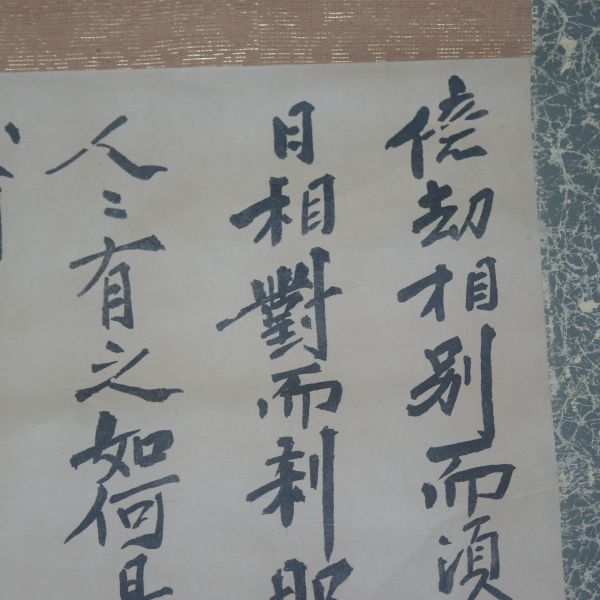 億劫相別而須
日相對而刹
人〻有之如何